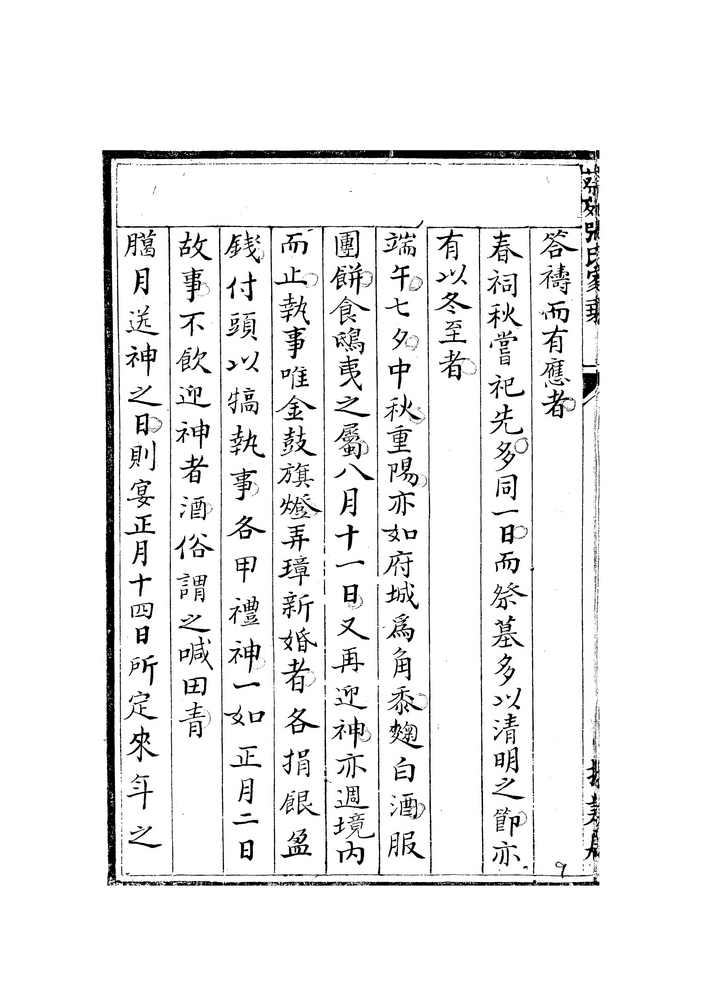 答禱而有應者
春祠秋嘗祀先多同一日而祭墓多以清明之節亦
有以冬至者
端午七夕中秋重陽亦如府城爲角黍麹白酒服
團餅食鴟夷之屬八月十一日又再迎神亦週境內
而止執事唯金鼓旗燈弄璋新婚者各捐銀盈
錢付頭以犒執事各甲禮神一如正月二日
故事不飲迎神者酒俗謂之喊田青
臈月送神之日則宴正月十四日所定來年之